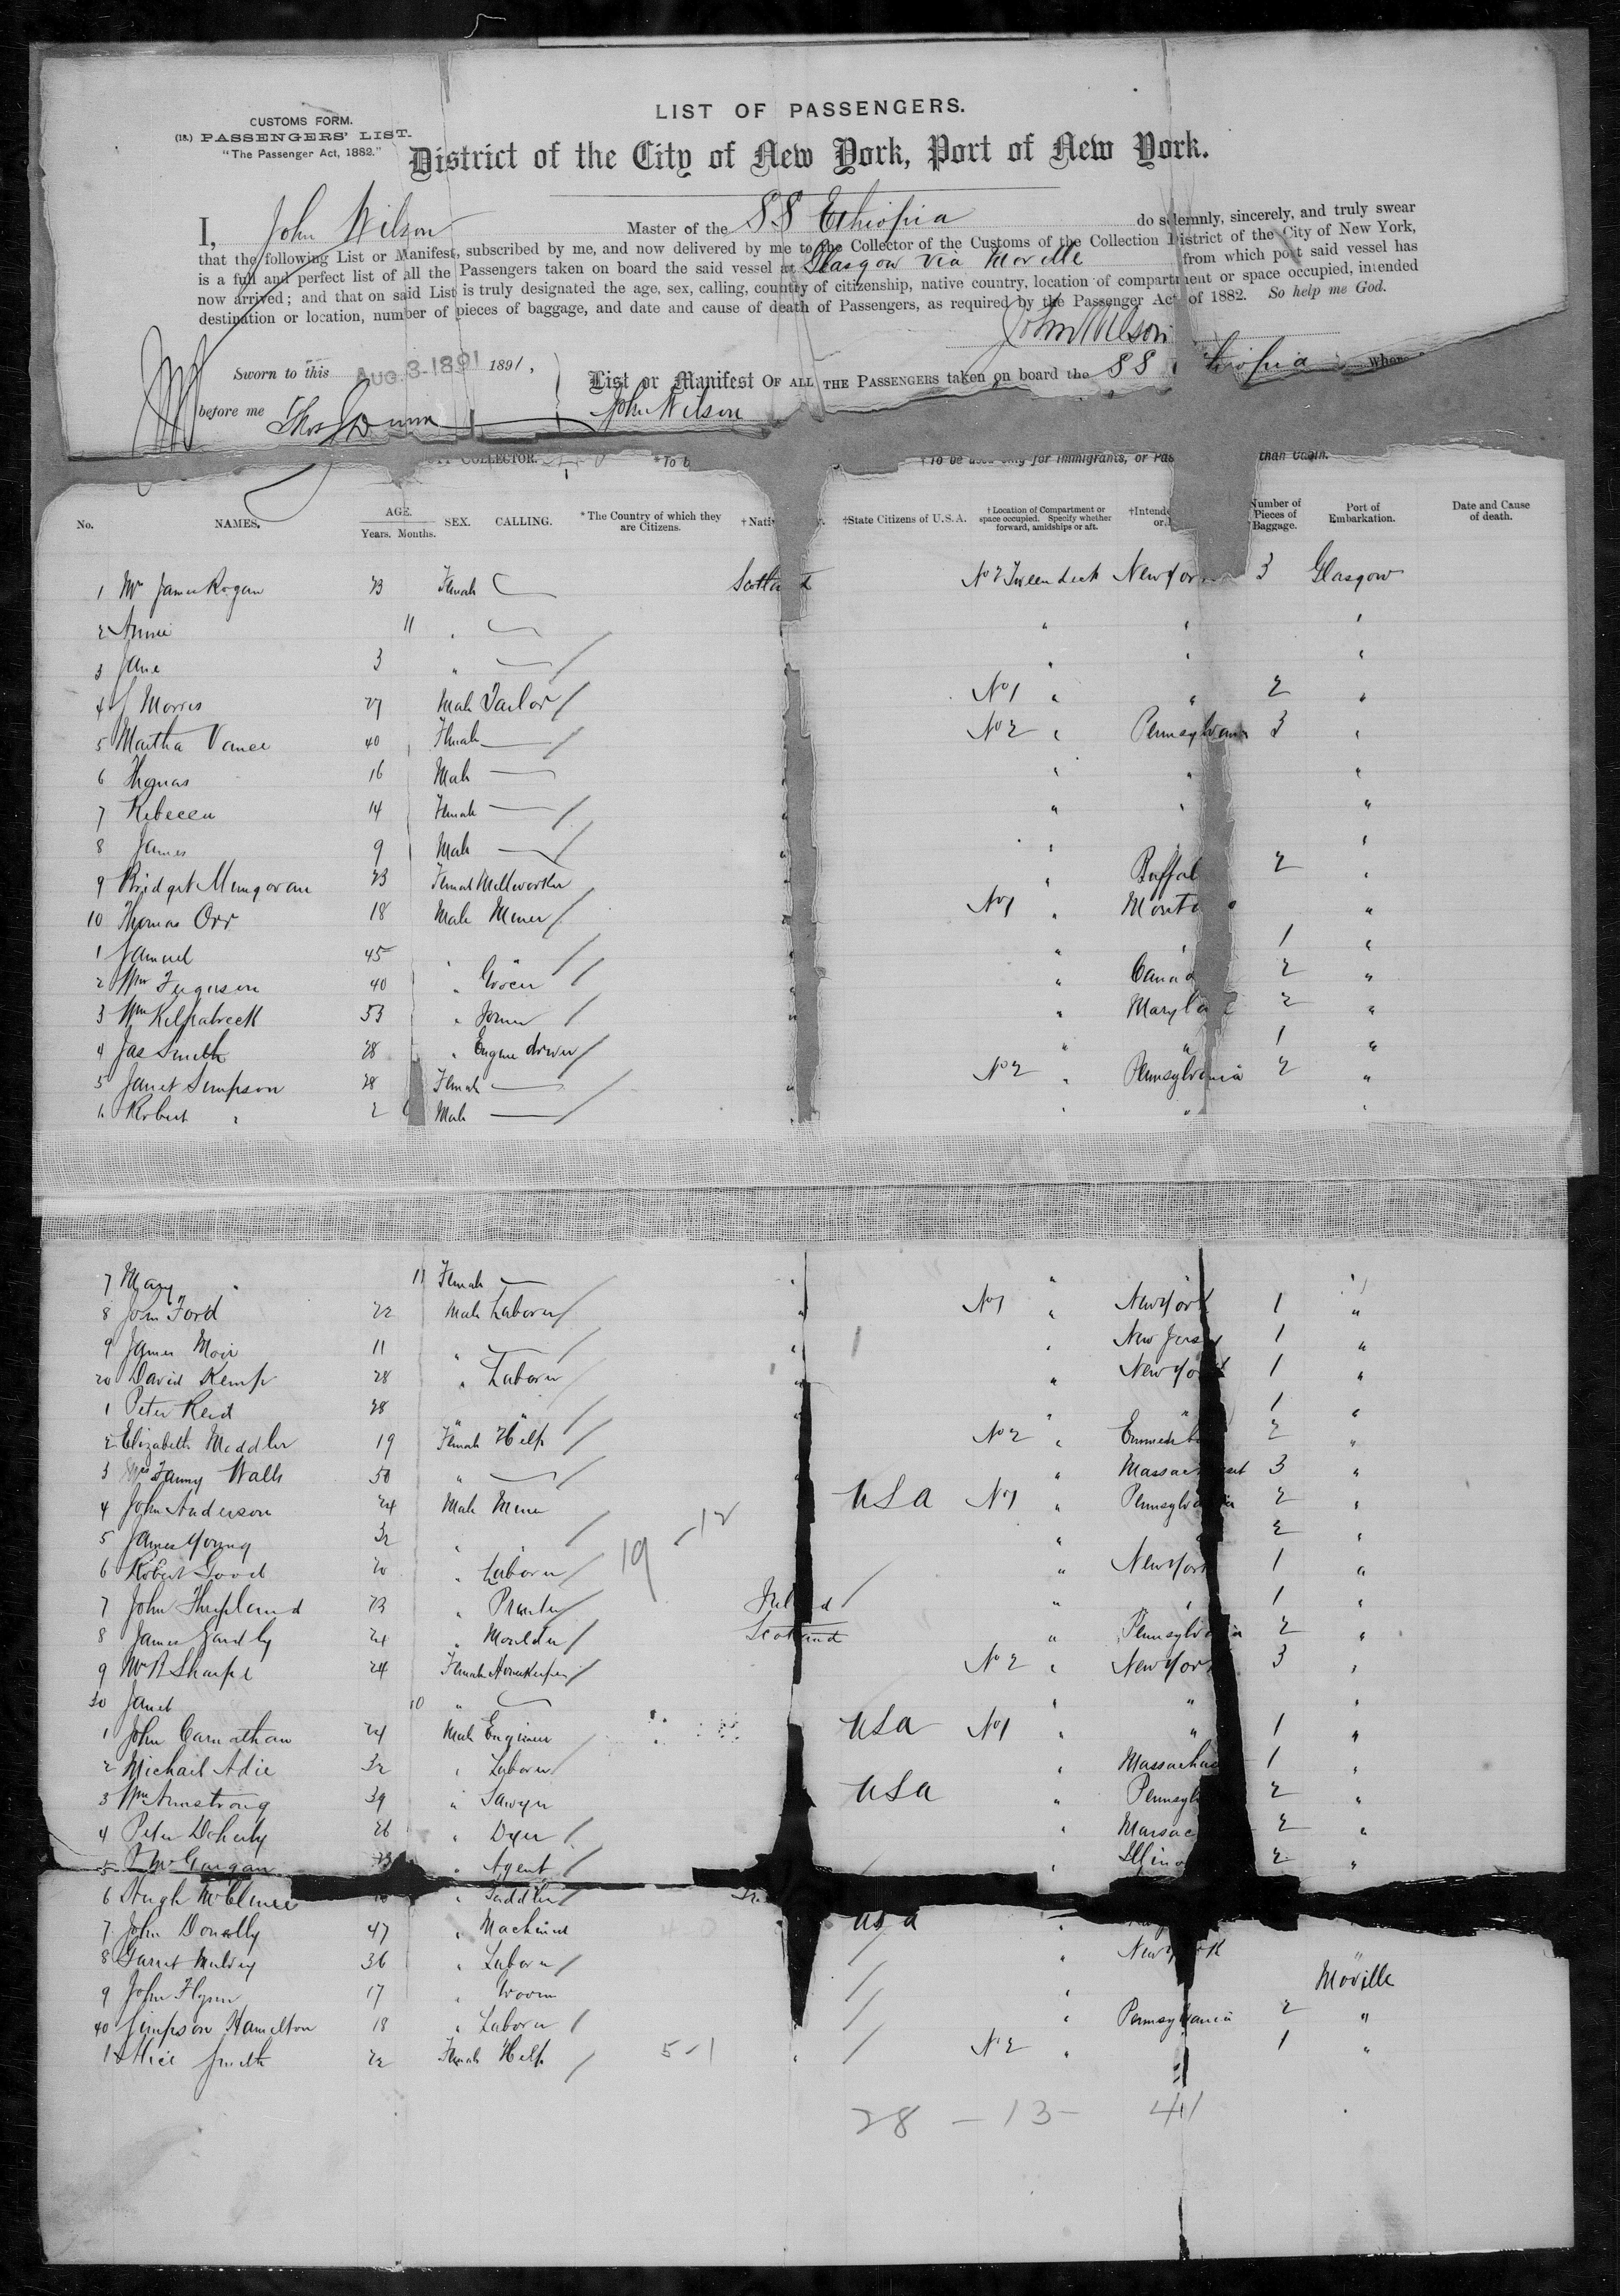 LIST OF PASSENGERS.
CUSTOMS FORM.
(18.) PASSENGERS' LIST.
"The Passenger Act, 1882."
District of the City of New York, Port of New York.
I, John Wilson Master of the SS Ethiopia do solemnly, sincerely, and truly swear
that the following List or Manifest, subscribed by me, and now delivered by me to the Collector of the Customs of the Collection District of the City of New York,
is a full and perfect list of all the Passengers taken on board the said vessel at Glasgow via Moville from which port said vessel has
now arrived; and that on said List is truly designated the age, sex, calling, country of citizenship, native country, location of compartment or space occupied, intended
destination or location, number of pieces of baggage, and date and cause of death of Passengers, as required by the Passenger Act of 1882. So help me God.
John Wilson
Sworn to this AUG. 3-1891 1891,
List or Manifest OF ALL THE PASSENGERS taken on board the SS
before me Thos Dunn
John Wilson
COLLECTOR. *To b †To be used only for Immigrants, or Pas than Cabin.
No. NAMES. AGE. Years. Months. SEX. CALLING. *The Country of which they are Citizens. †State Citizens of U.S.A. †Location of Compartment or space occupied. Specify whether forward, amidships or aft. Number of Pieces of Baggage. Port of Embarkation. Date and Cause of death.
1 James Rogan 23 Female Scotland No 2 Tween deck New York 3 Glasgow
2 Annie 11 " " " "
3 Jane 3 " " " "
4 J Morris 27 Male Tailor No 1 " " 2 "
5 Martha Vance 40 Female No 2 " Pennsylvania 3 "
6 Thomas 16 Male " " "
7 Rebecca 14 Female " " "
8 James 9 Male " "
9 Bridget Mungovan 23 Female Millworker " Buffal 2 "
10 Thomas Orr 18 Male Miner No 1 " "
1 Samuel 45 " " " " 1 "
2 Wm Ferguson 40 " Grocer " Canad 2 "
3 Wm Kilpatrick 53 " Joiner " Maryland 2 "
4 Jas Smith 28 " Engine driver " " 1 "
5 Janet Simpson 28 Female No 2 " Pennsylvania 2 "
6 Robert " 2 Male " " "
7 Mary " 11 Female " " "
8 John Ford 22 Male Laborer No 1 " New York 1 "
9 James Moir 11 " " New Jersey 1 "
20 David Kemp 28 " Laborer " New York 1 "
1 Peter Reid 28 " " " " 1 "
2 Elizabeth Meddler 19 Female Help No 2 " 2 "
3 Mrs Fanny Walls 50 " " 3 "
4 John Anderson 24 Male Miner USA No 1 " Pennsylvania 2 "
5 James Young 32 " " " " 2 "
19 -12
6 Robert Good 20 " Laborer " New York 1 "
7 John 23 " Printer Ireland " " 1 "
8 James 24 " Moulder Scotland " Pennsylvania 2 "
9 R Sharpe 24 Female Housekeeper No 2 " New York 3 "
30 Janet 10 " " " "
1 John Carnathan 24 Male Engineer USA No 1 " " 1 "
2 Michail Adie 32 " Laborer " Massachus 1 "
3 Wm Armstrong 39 " Sawyer USA " Pennsyl 2 "
4 Peter Doherty 26 " Dyer " Massac 2 "
5 P McGurgan 23 " Agent " Illino 2 "
6 Hugh " Saddler
7 John Donally 47 " Machinist USA "
8 Garret Mulvey 36 " Laborer " New York
9 John Flynn 17 " " Moville
40 Simpson Hamelton 18 " Laborer " Pennsylvania 2 "
1 Alice Smith 22 Female Help 5-1 " No 2 " 1 "
28 - 13 - 41